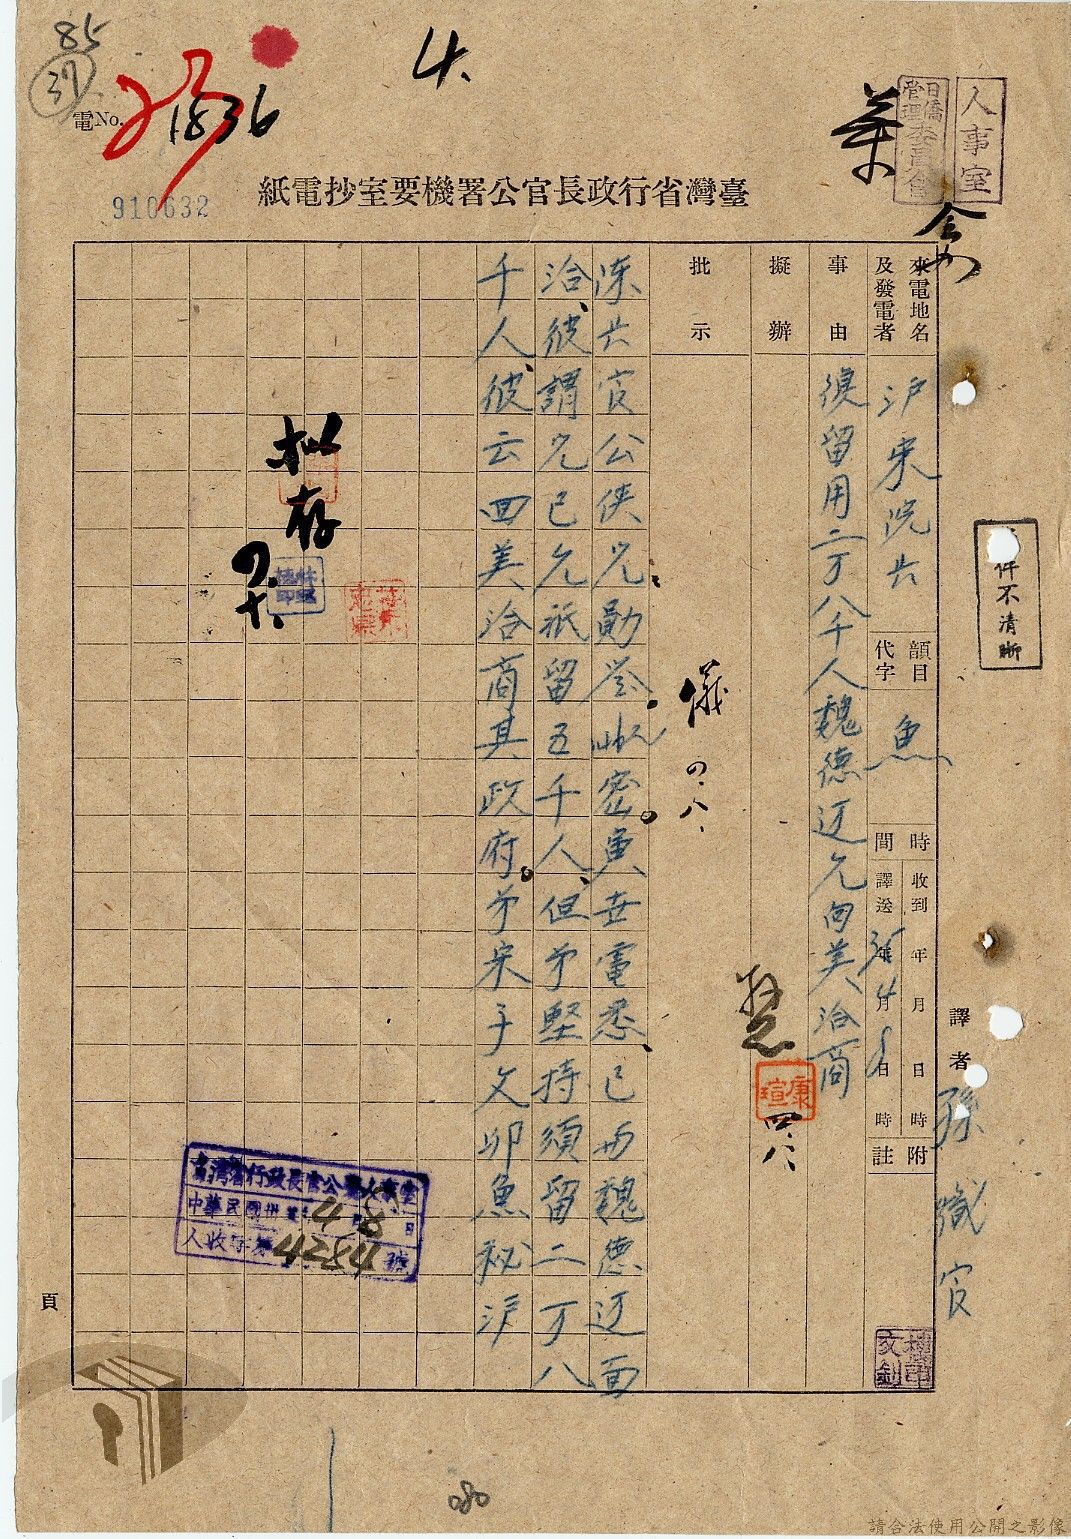 85
37
4.
電No. 1836
910632
葉
日僑管理委員會
人事室
臺灣省行政長官公署機要室抄電紙
來電地名及發電者
滬宋院長
韻目代字
魚
時間
收到 年 月 日 時
譯送 35年4月8日 時
附註
譯者 孫職官
事由
復留用二万八千人魏德迈允向美洽商
擬辦
批示
儀 四.八、
康瑄
四.八、
陳长官公俠兄勛鉴:密魚世電悉、已与魏德迈面
洽、彼謂允已允祇留五千人、但弟堅持須留二万八
千人、彼云回美洽商其政府。弟宋子文卯魚秘沪
拟存
四.十、
件不清晰
臺灣省行政長官公署人事室
中華民國卅五年4月8日
人收字第4284號
頁
080
請合法使用公開之影像